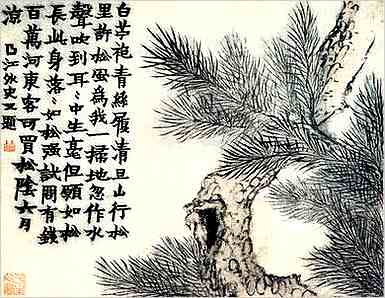 白苧袍青絲履清旦山行松
里許松風為我一掃地忽作水
聲吹到耳〃中生毫但願如松
長此身落〃如松強試問有錢
百萬河東客可買松陰六月
涼
江外史題